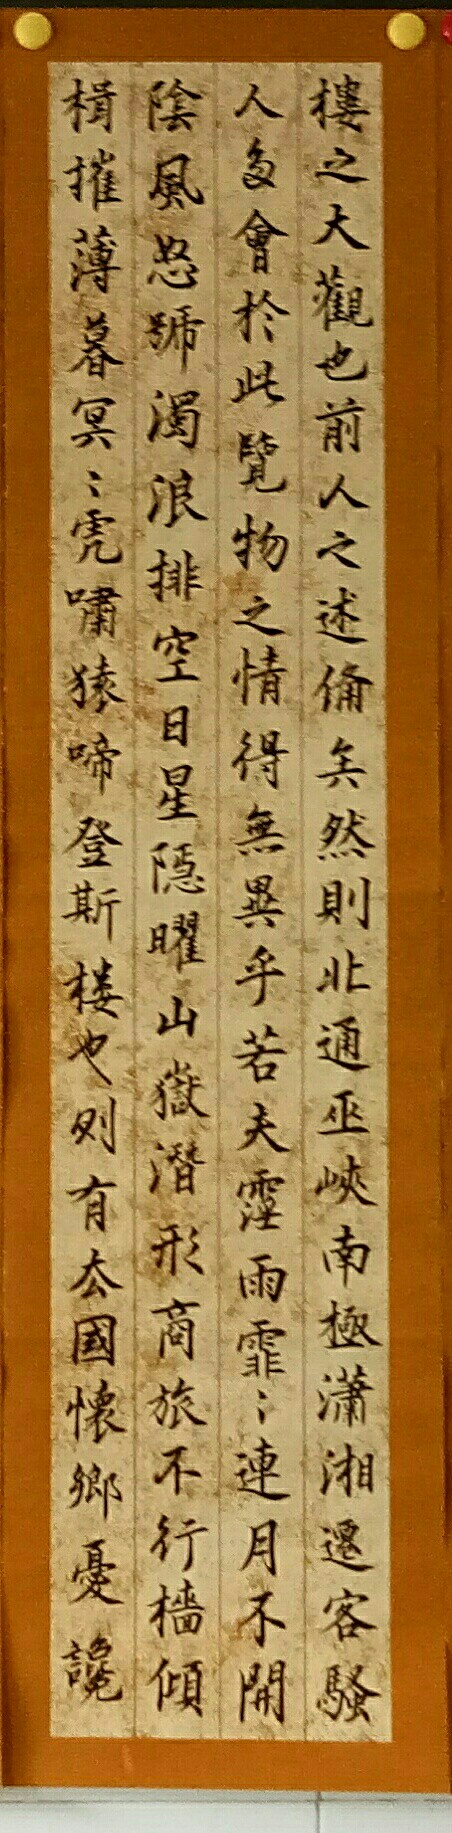 樓之大觀也前人之述俻矣然則北通巫峽南極瀟湘遷客騷
人多會於此覽物之情得無異乎若夫霪雨霏〻連月不開
陰風怒號濁浪排空日星隱曜山嶽潛形商旅不行檣傾
楫摧薄暮冥〻虎嘯猿啼登斯楼也则有去國懷鄉憂讒